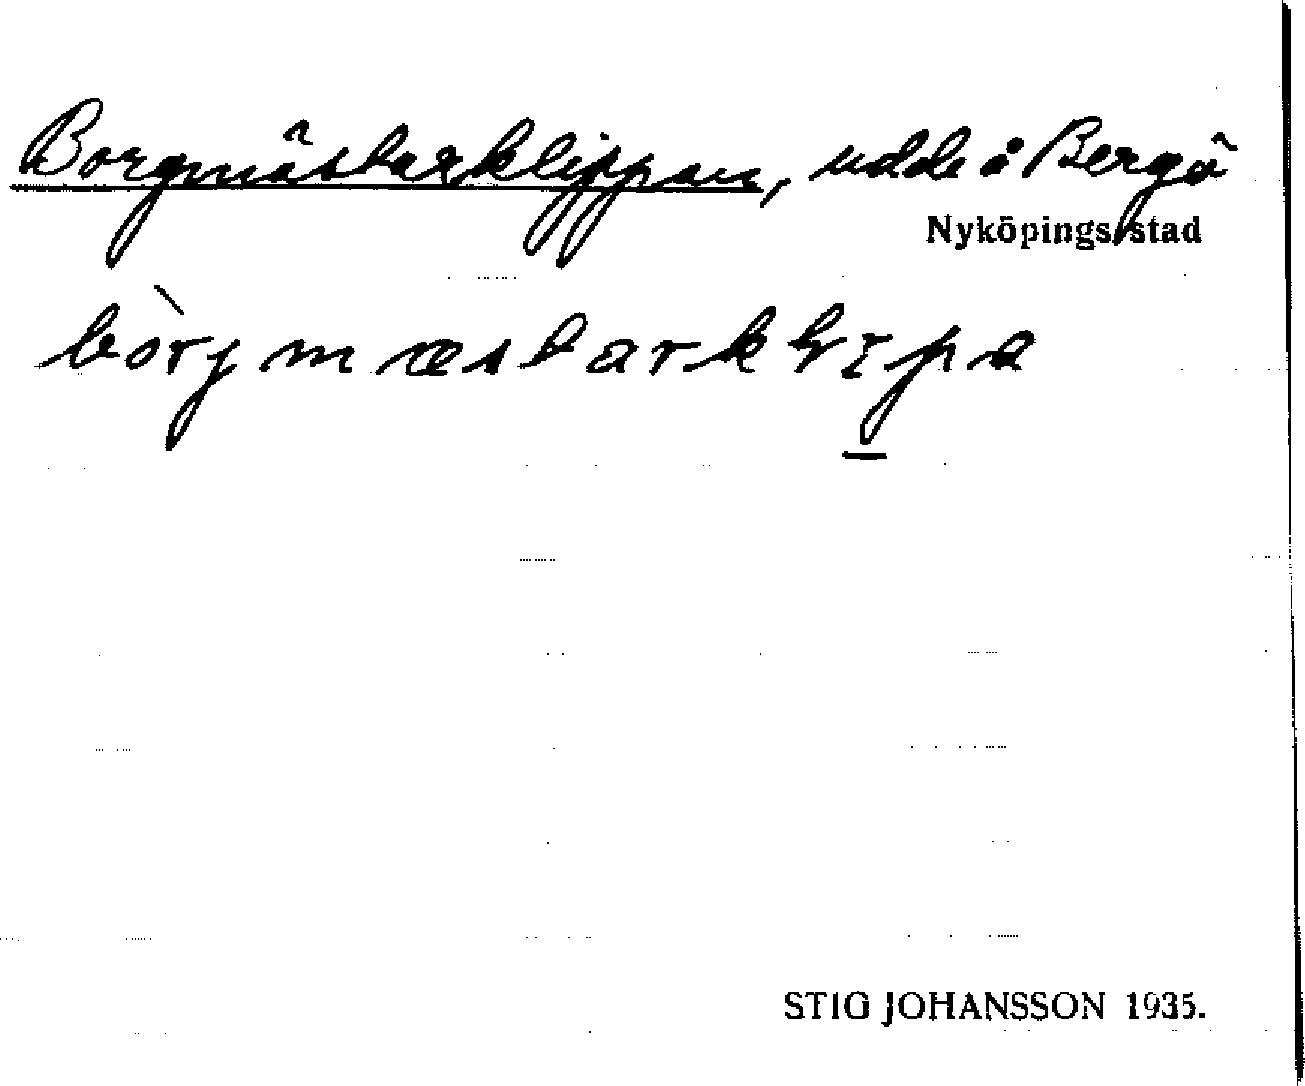 Borgmästarklippan, udde å Bergö
Nyköpings stad
bòrjmæstarklɪpa
STIG JOHANSSON 1935.